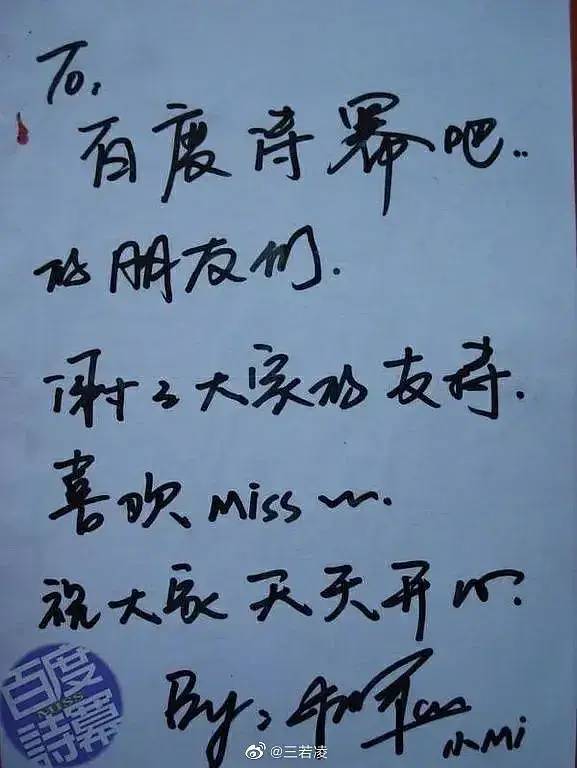 To,
百度诗幂吧..
的朋友们.
谢々大家的支持.
喜欢 miss ~.
祝大家天天开心.
By: 杨幂
小Mi
百度
MISS
詩幂
@三若凌